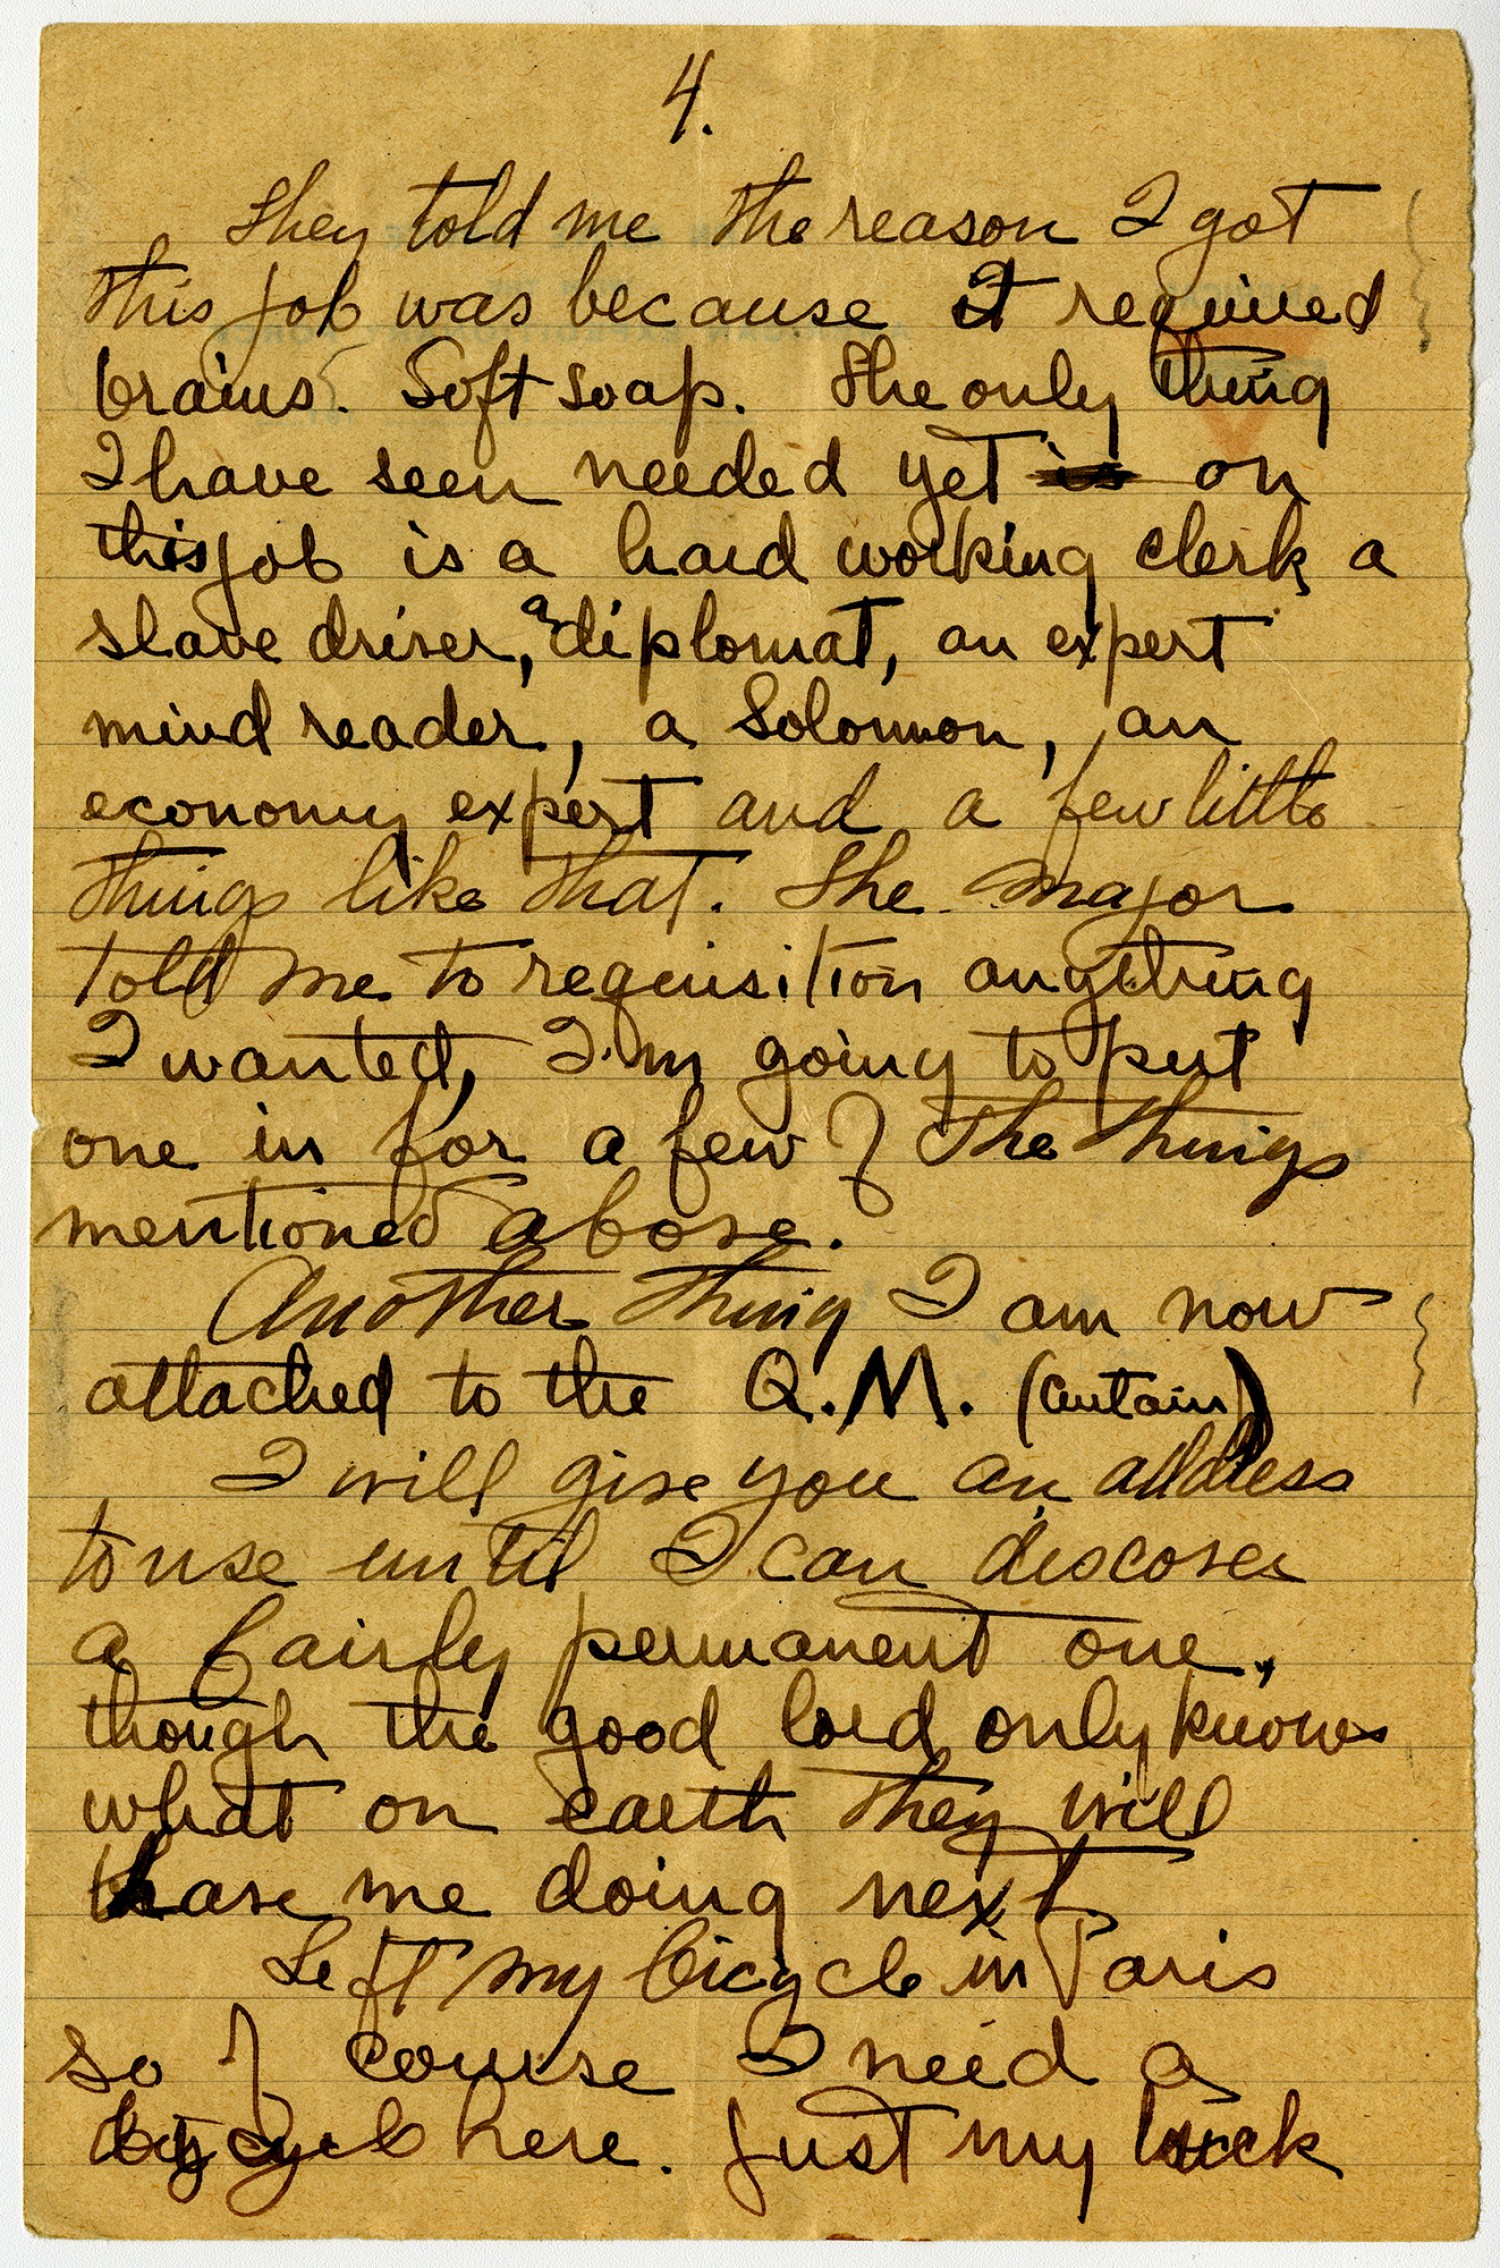 4.
They told me the reason I got
this job was because it required
brains. Soft soap. The only thing
I have seen needed yet is on
this job is a hard working clerk a
slave driver, a diplomat, an expert
mind reader, a Solomon, an
economy expert and a few little
things like that. The Major
told me to requisition anything
I wanted, I'm going to put
one in for a few of the things
mentioned above.
Another thing I am now
attached to the Q.M. (
I will give you an address
to use until I can discover
a fairly permanent one,
though the good lord only knows
what on earth they will
have me doing next.
Left my bicycle in Paris
so of course I need a
bicycle here. Just my luck